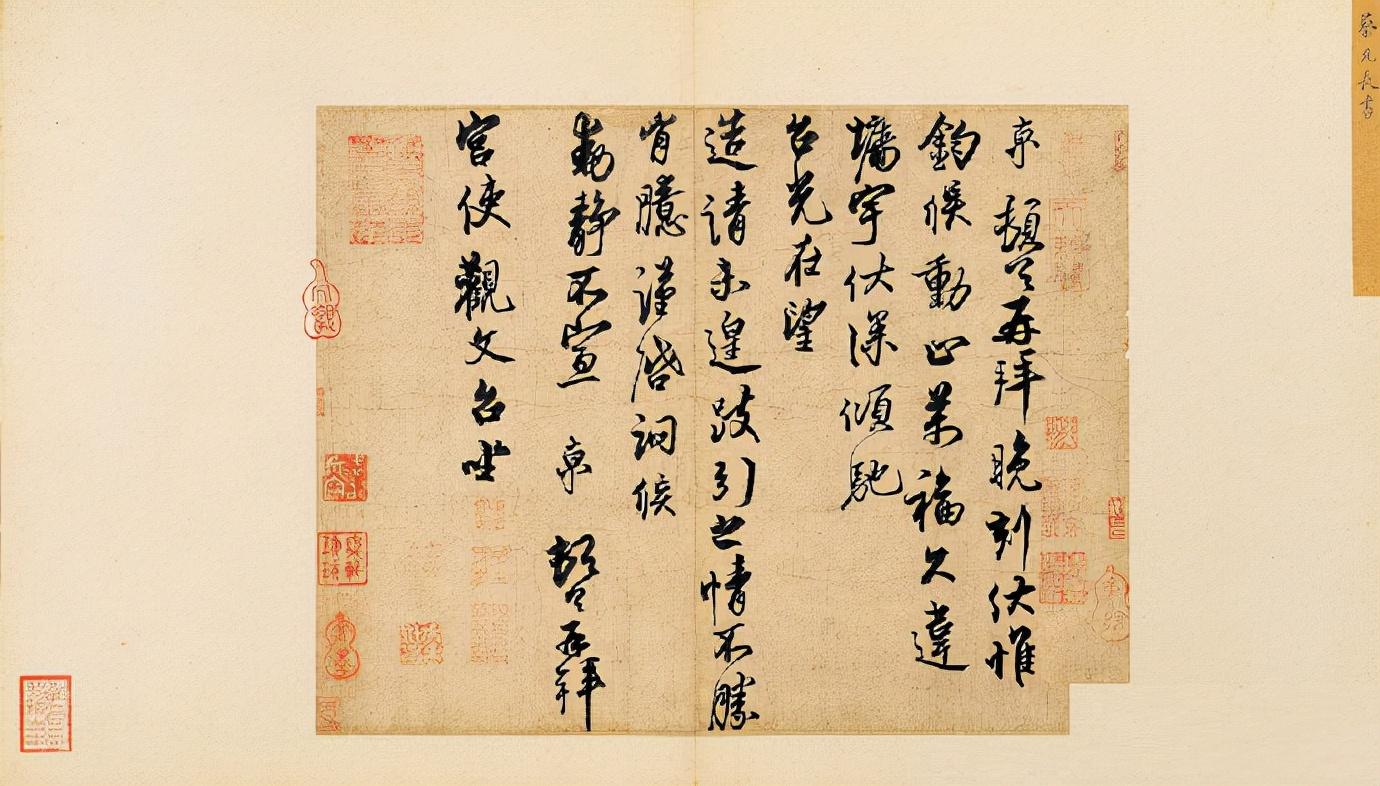 蔡元長書
京頓首再拜晚刻伏惟
鈞候動止萬福久違
墉宇伏深傾馳
台光在望
造請未遑跂引之情不勝
胷臆謹啓詞候
動靜不宣 京頓首再拜
宮使觀文台坐